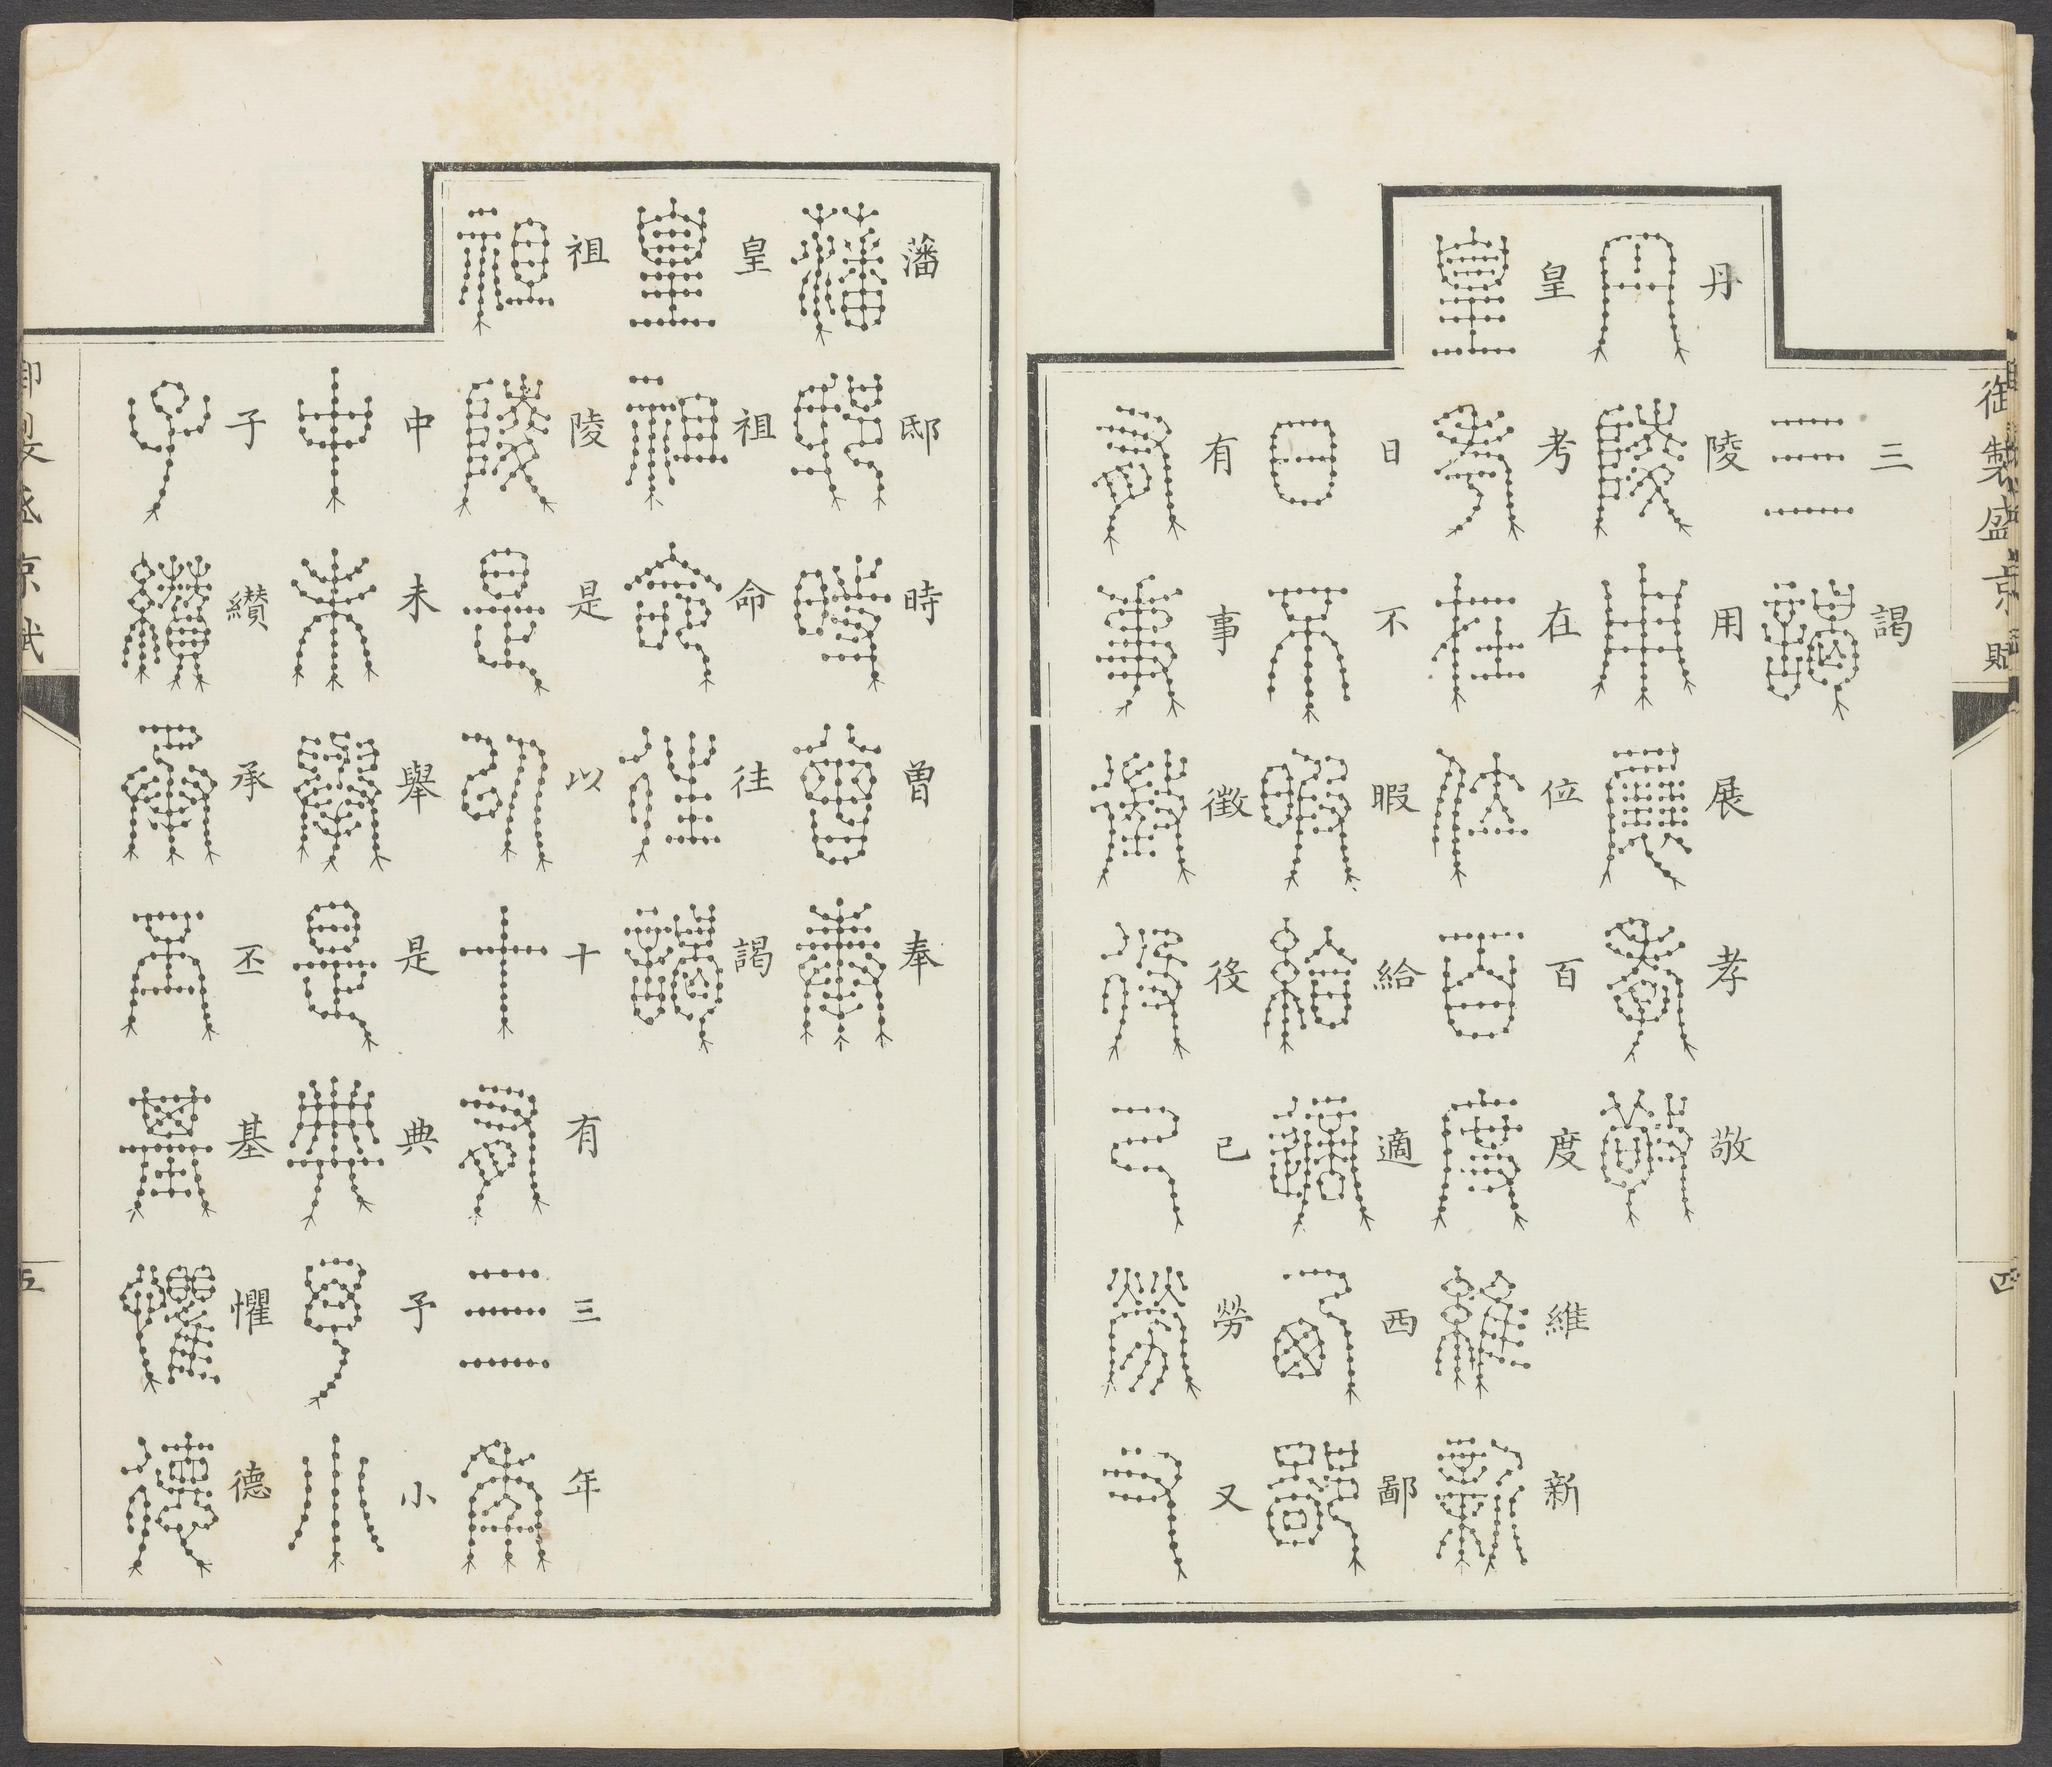 御製盛京賦 四
三謁
丹陵用展孝敬
皇考在位百度維新
日不暇給適西鄙
有事徵役已勞又
藩邸時曾奉
皇祖命往謁
祖陵是以十有三年
中未舉是典予小
子纘承丕基懼德
御製盛京賦 五